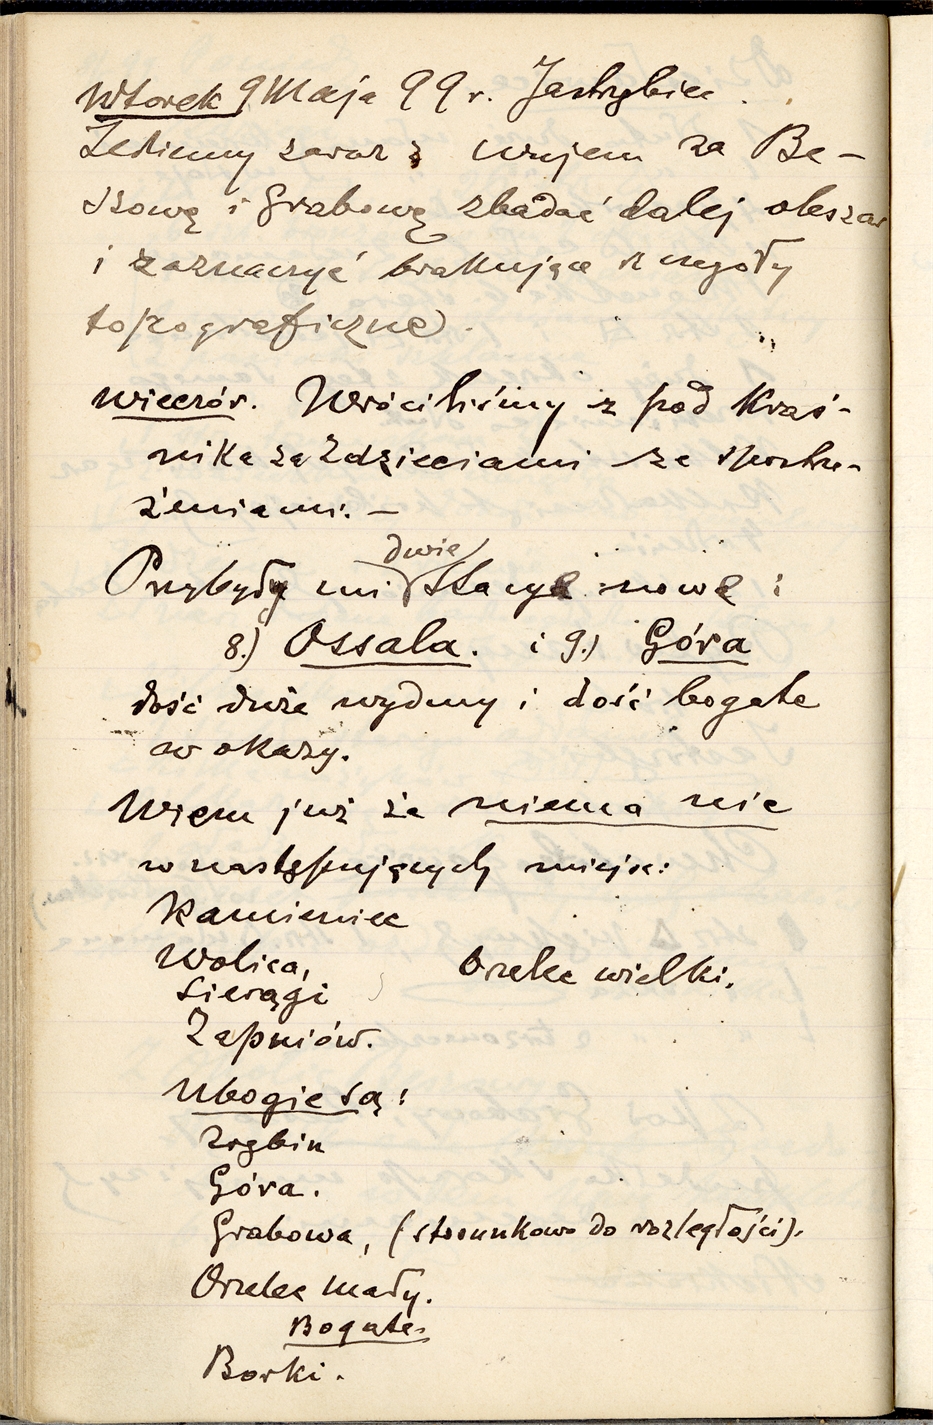 Wtorek 9 Maja 99 r. Jastrzębiec.
Jedziemy zaraz z wujem za Be-
szową i Grabową zbadać dalej obszar
i zaznaczyć brakujące szczegóły
topograficzne.
Wieczór. Wróciliśmy z pod Kraś-
nika za Zdzieciami ze spostrze-
żeniami. —
dwie
Przybyły mi stacye nowe:
8.) Ossala. i 9.) Góra
dość duże wydmy i dość bogate
w okazy.
Wiem już że niema nic
w następujących miejsc:
Kamieniec
Wolica, Orzelec wielki.
Sieragi
Zapniów.
Ubogie są:
Zrębin
Góra.
Grabowa, (stosunkowo do rozległości).
Orzelec mały.
Bogate.
Borki.